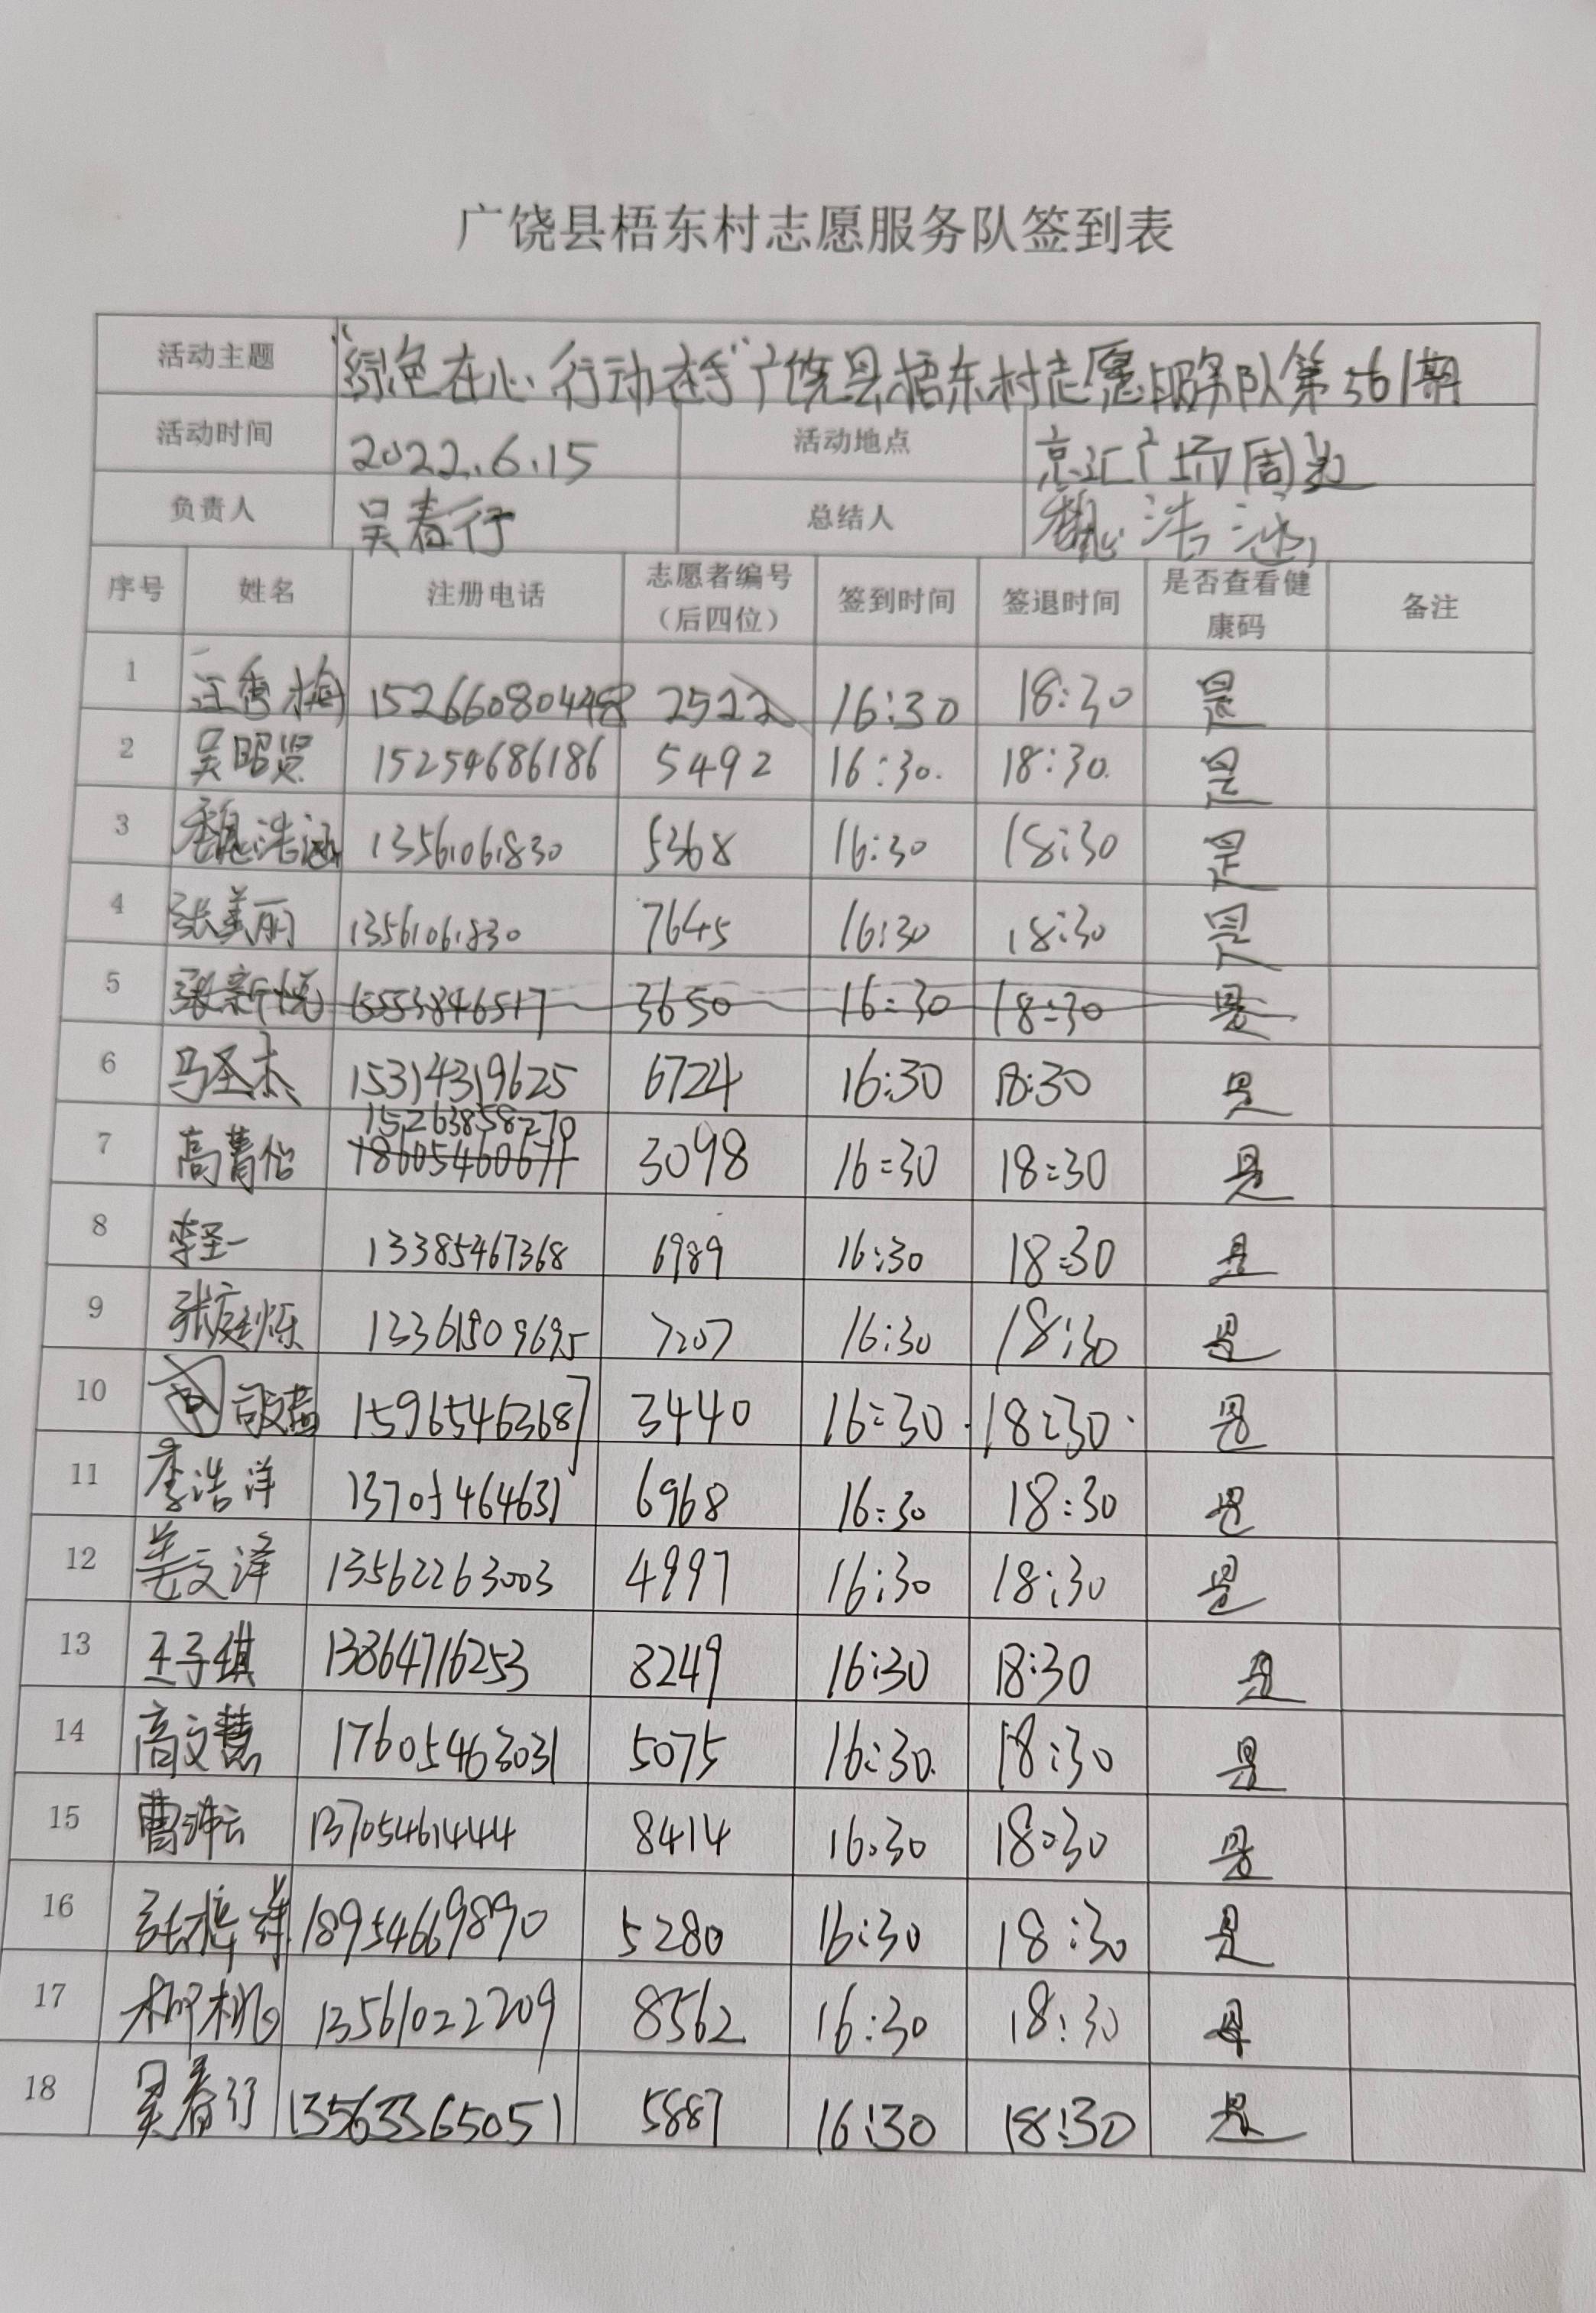 广饶县梧东村志愿服务队签到表
活动主题 “绿色在心 行动在手”广饶县梧东村志愿服务队第561期
活动时间 2022.6.15 活动地点 京汇广场周边
负责人 吴春行 总结人 魏浩涵
序号 姓名 注册电话 志愿者编号（后四位） 签到时间 签退时间 是否查看健康码 备注
1 汪秀梅 2522 16:30 18:30 是
2 吴昭贤 15254686186 5492 16:30. 18:30. 是
3 魏浩涵 13561061830 5368 16:30 18:30 是
4 张美丽 13561061830 7645 16:30 18:30 是
5 张新悦 15553846517 3650 16:30 18:30 是
6 马圣杰 15314319625 6724 16:30 18:30 是
7 高菁怡 15263858270 3098 16:30 18:30 是
8 李圣一 13385467368 6989 16:30 18:30 是
9 张庭烁 13361509695 7207 16:30 18:30 是
10 15965463687 3440 16:30. 18:30. 是
11 李浩洋 13705464631 6968 16:30 18:30 是
12 姜文泽 13562263003 4997 16:30 18:30 是
13 王子琪 13864716253 8249 16:30 18:30 是
14 高文慧 17605463031 5075 16:30. 18:30 是
15 曹 13705461444 8414 16:30 18:30 是
16 张梓祥 18954669890 5280 16:30 18:30 是
17 柳 13561022209 8562 16:30 18:30 是
18 吴春行 13563365051 5887 16:30 18:30 是